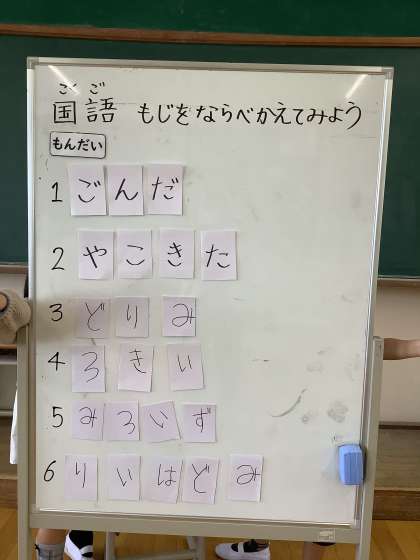 こくご
国語 もじをならべかえてみよう
もんだい
1 ごんだ
2 やこきた
3 どりみ
4 ろきい
5 みろいず
6 りいはどみ